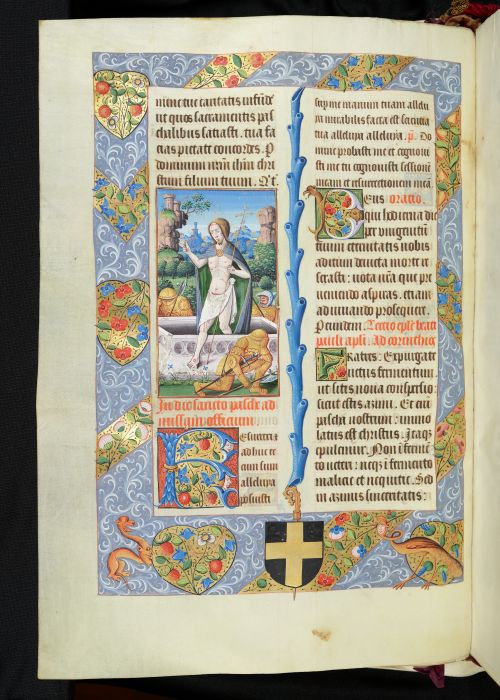 mine tue caritatis infūde
ut quos sacramentis pas
chalibus satiasti. tua fa
cias pietate concordes. P
dominum nr̄m ihm chri
stum filium tuum. Et
In die sancto pasche ad
missam officium
Resurrexi
et adhuc te
cum sum
alleluya
posuisti
super me manum tuam allelu
ya mirabilis facta est scientia
tua alleluya alleluya. p̄. Do
mine probasti me et cognoui
sti me tu cognouisti sessionē
meam et resurrectionem meā.
Deus Oratio.
qui hodierna die
per vnigenitū
tuum eternitatis nobis
aditum deuicta morte re
serasti: uota nr̄a que pre
ueniendo aspiras. etiam
adiuuando prosequere.
P eundem. Lectio epl̄e beati
pauli apl̄i. Ad corinthios
Fratres: Expurgate
uetus fermentum.
ut sitis noua conspersio:
sicut estis azimi. Et enī
pascha nostrum: immo
latus est christus. Itaq3
epulemur. Non ī fermen
to ueteri: neq3 ī fermento
malicie et nequitie. Sed
in azimis sinceritatis: